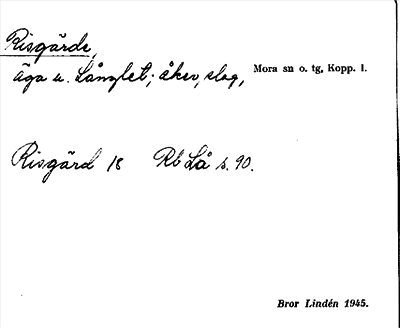 Risgärde,
äga u. Långlet; åker, slog, Mora sn o. tg, Kopp. l.
Risgärd 18 Rb Lå s. 90.
Bror Lindén 1945.